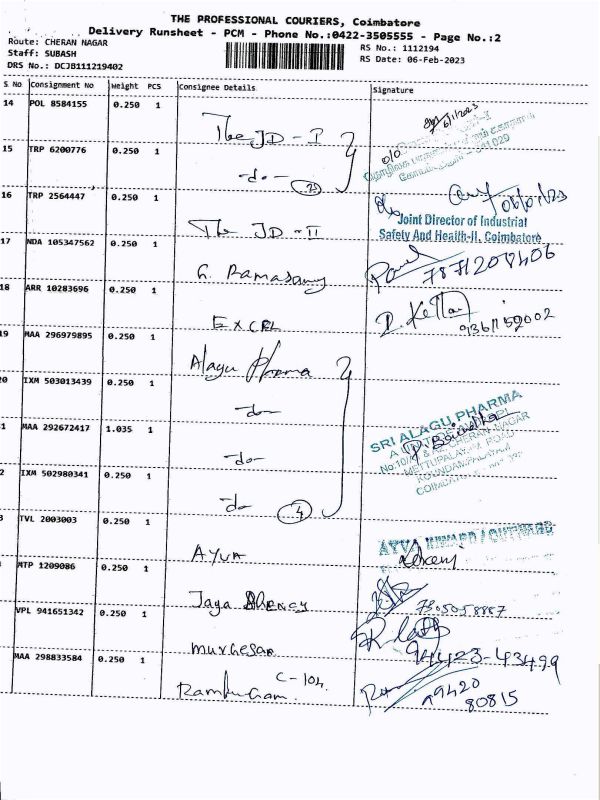 THE PROFESSIONAL COURIERS, Coimbatore
Delivery Runsheet - PCM - Phone No.:0422-3505555 - Page No.:2
Route: CHERAN NAGAR
Staff: SUBASH
DRS No.: DCJB111219402
RS No.: 1112194
RS Date: 06-Feb-2023
S No Consignment No Weight PCS Consignee Details Signature
14 POL 8584155 0.250 1 The JD - I
15 TRP 6200776 0.250 1 -do-
641 029
16 TRP 2564447 0.250 1 The JD - II
Joint Director of Industrial
Safety And Health-II, Coimbatore
17 NDA 105347562 0.250 1 G. Ramasamy 7871207406
18 ARR 10283696 0.250 1 EXCEL 9361152002
19 MAA 296979895 0.250 1 Alagu Pharma
20 IXM 503013439 0.250 1 -do-
1 MAA 292672417 1.035 1 -do-
SRI ALAGU PHARMA
CHERAN NAGAR
METTUPALAYAM ROAD
2 IXM 502980341 0.250 1 -do- 4
3 TVL 2003003 0.250 1 AYVA
AYVA INWARD / OUTWARD
MTP 1209086 0.250 1 Jaya 7305058887
VPL 941651342 0.250 1 Murugesan 94423-43499
MAA 298833584 0.250 1 C-104
79420
80815